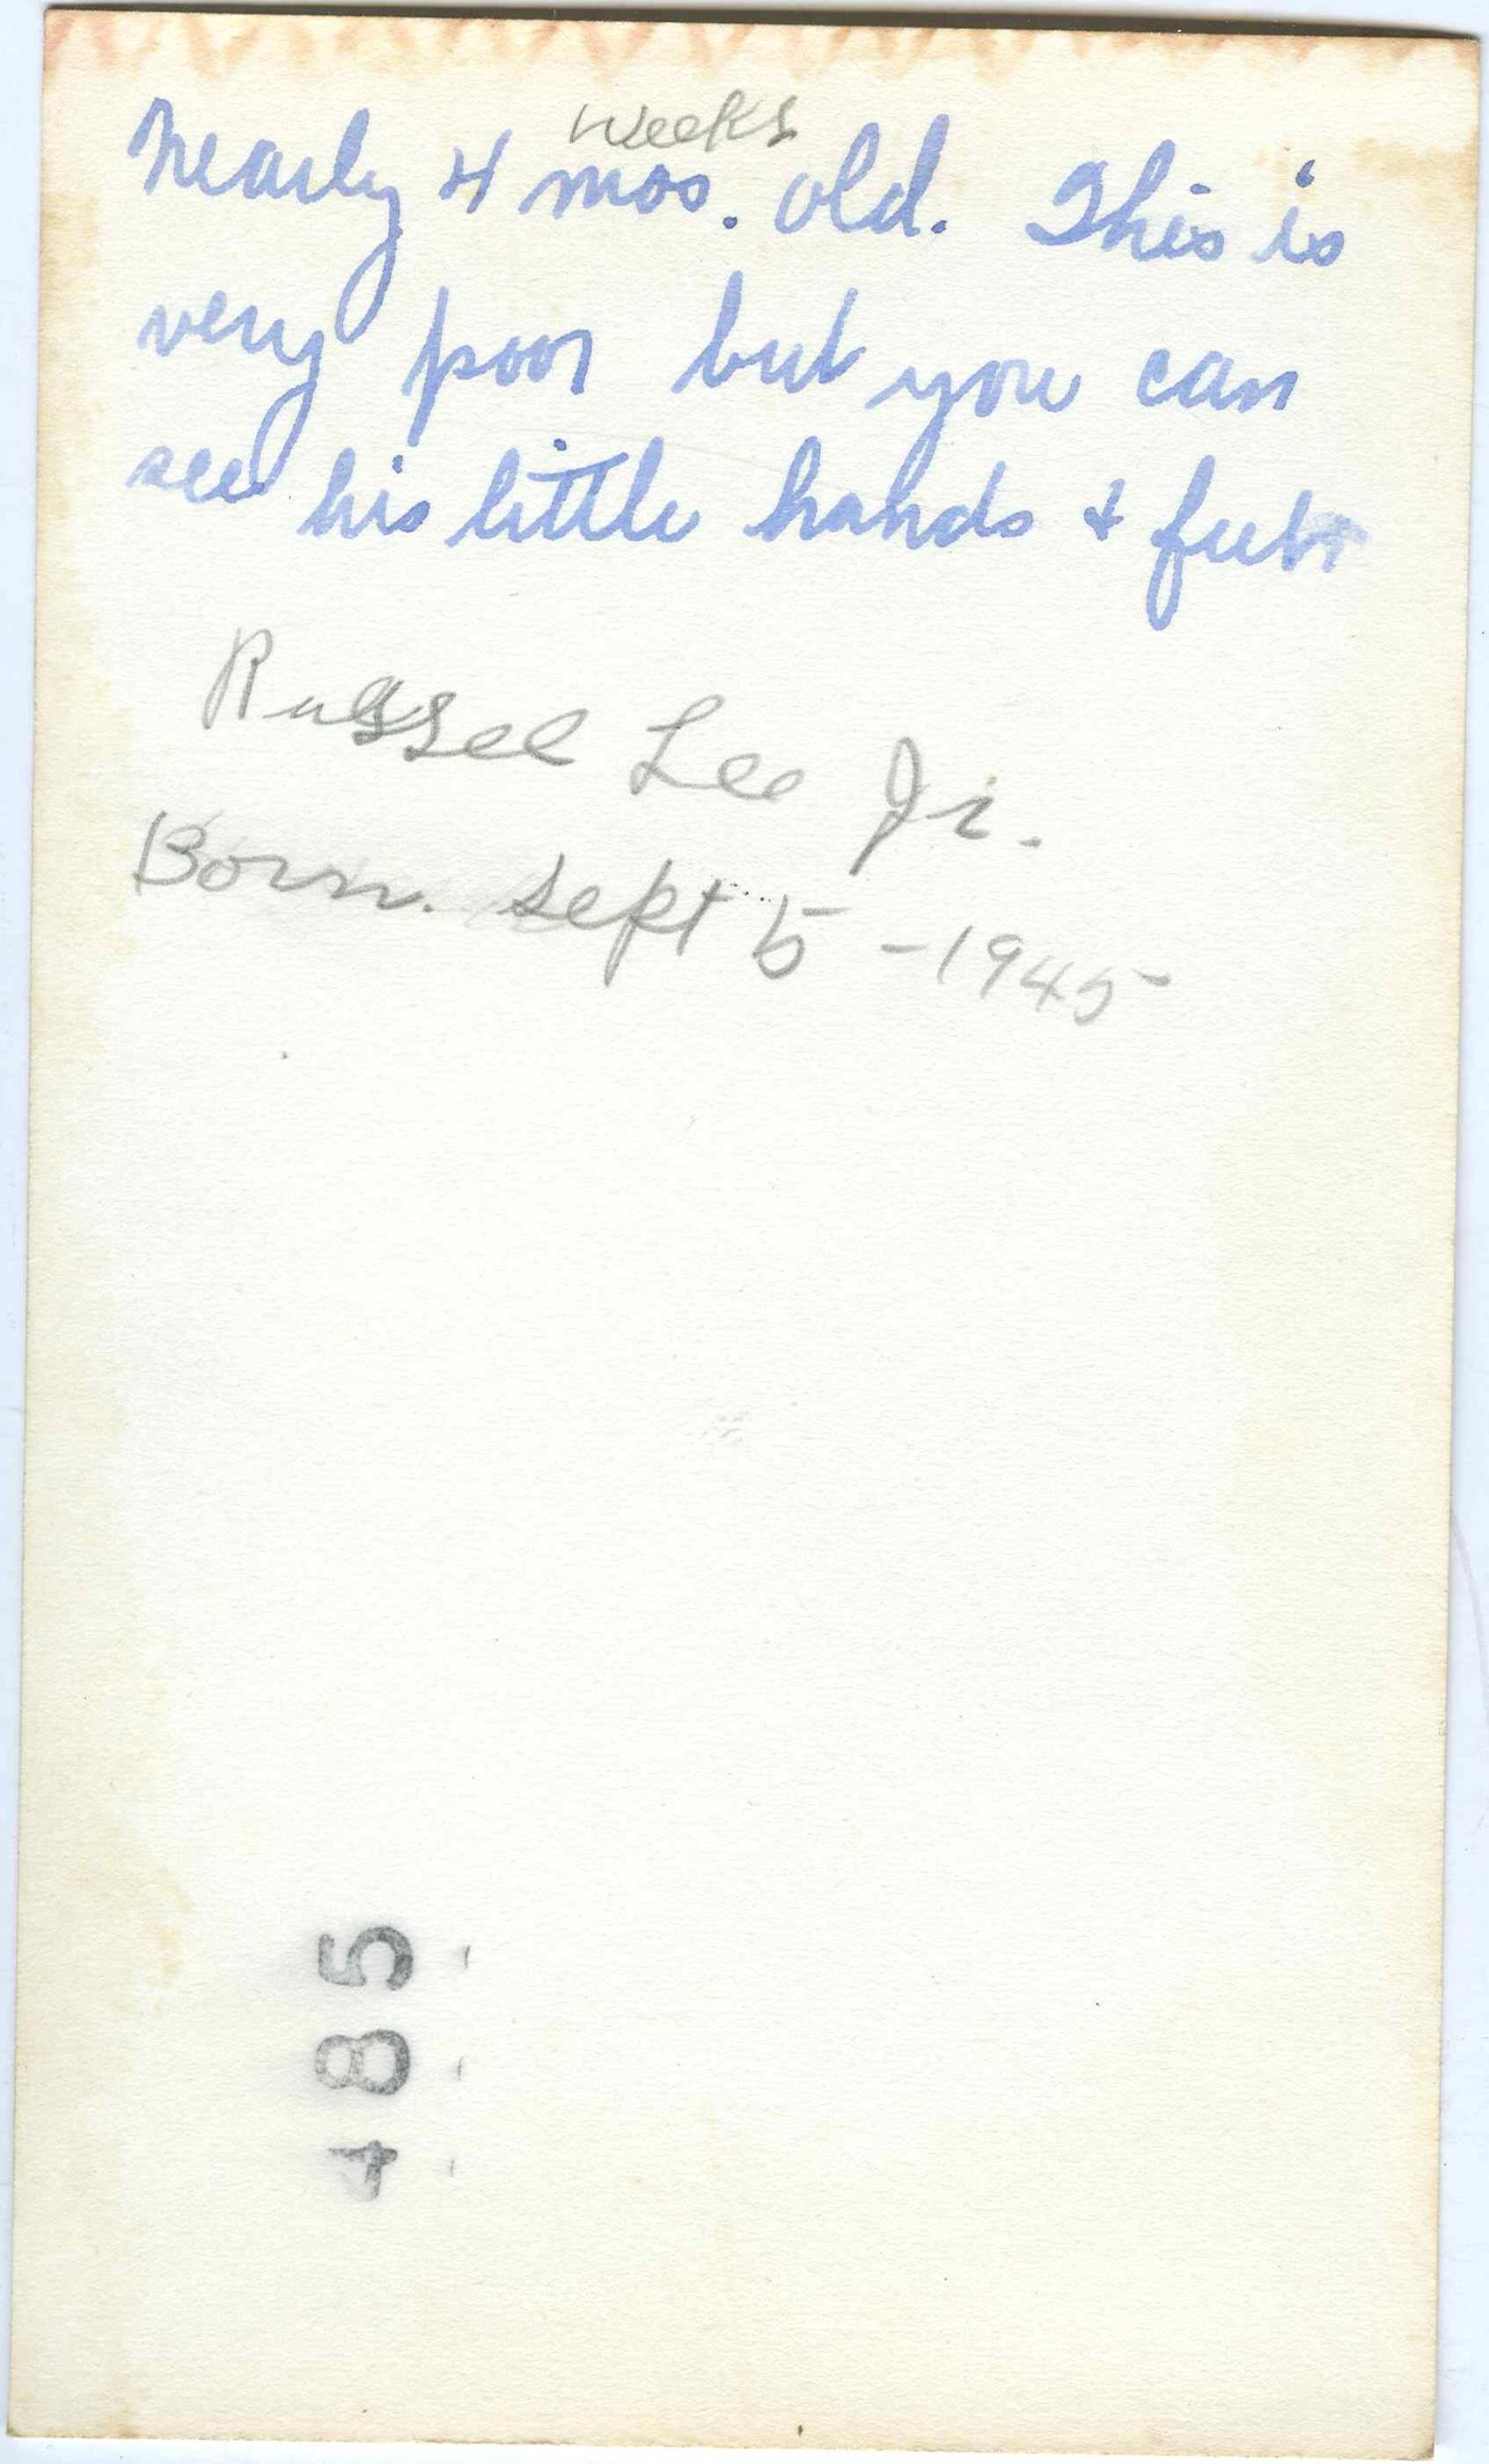 weeks
nearly 4 mos. old. This is
very poor but you can
see his little hands + feet
Russel Lee Jr.
Born. Sept 5 - 1945
485